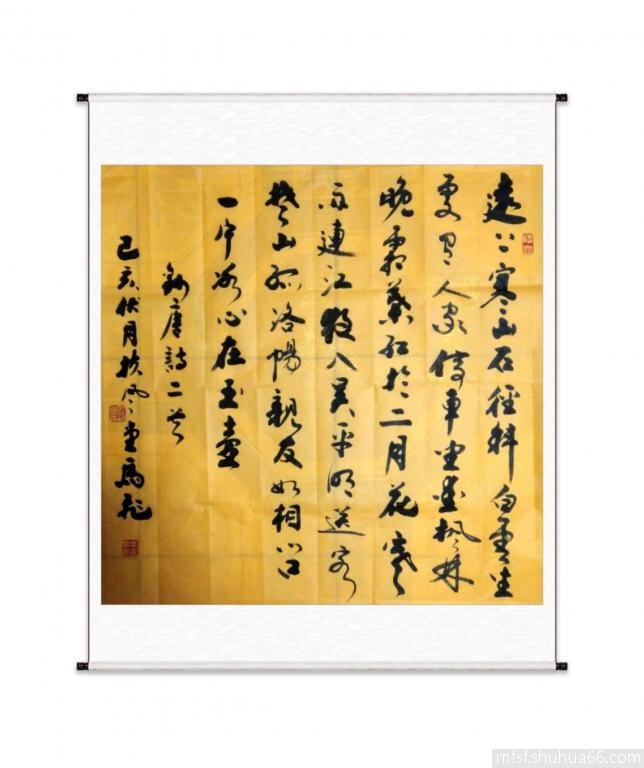 遠上寒山石徑斜白雲生
處有人家停車坐愛楓林
晚霜葉紅於二月花寒
雨連江夜入吳平明送客
楚山孤洛陽親友如相問
一片冰心在玉壺
錄唐詩二首
己亥伏月於風堂馬
mfsf.shuhua66.com